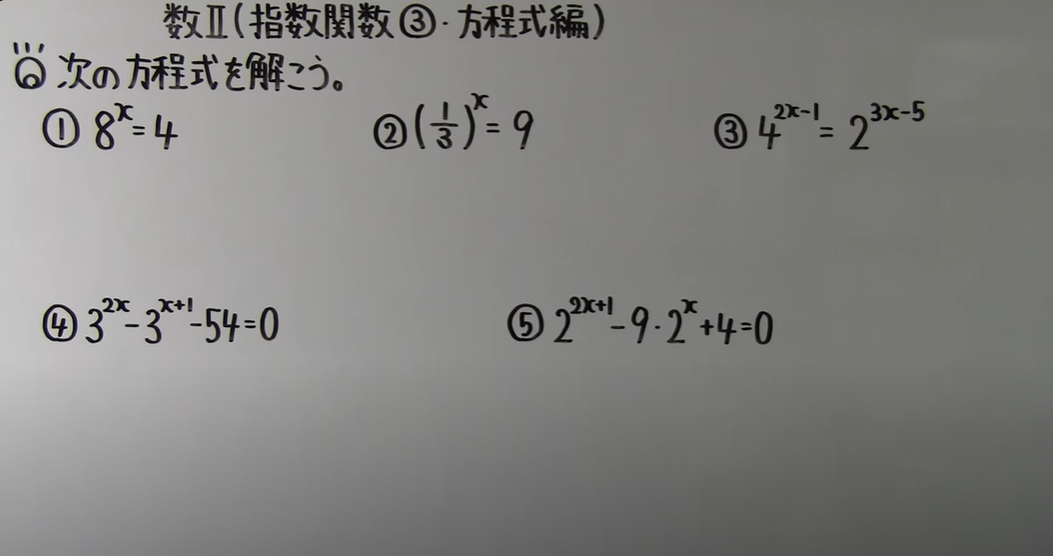 数Ⅱ(指数関数③・方程式編)
Q 次の方程式を解こう。
① 8ˣ=4 ② (1/3)ˣ=9 ③ 4²ˣ⁻¹=2³ˣ⁻⁵
④ 3²ˣ-3ˣ⁺¹-54=0 ⑤ 2²ˣ⁺¹-9·2ˣ+4=0